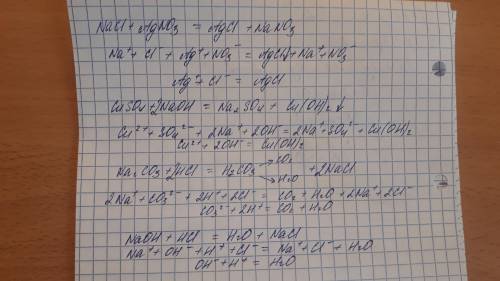 NaCl + AgNO₃ = AgCl + NaNO₃
Na⁺ + Cl⁻ + Ag⁺ + NO₃⁻ = AgCl↓ + Na⁺ + NO₃⁻
Ag⁺ + Cl⁻ = AgCl
CuSO₄ + 2NaOH = Na₂SO₄ + Cu(OH)₂↓
Cu²⁺ + SO₄²⁻ + 2Na⁺ + 2OH⁻ = 2Na⁺ + SO₄²⁻ + Cu(OH)₂
Cu²⁺ + 2OH⁻ = Cu(OH)₂
CO₂
Na₂CO₃ + 2HCl = H₂CO₃ + 2NaCl
H₂O
2Na⁺ + CO₃²⁻ + 2H⁺ + 2Cl⁻ = CO₂ + H₂O + 2Na⁺ + 2Cl⁻
CO₃²⁻ + 2H⁺ = CO₂ + H₂O
NaOH + HCl = H₂O + NaCl
Na⁺ + OH⁻ + H⁺ + Cl⁻ = Na⁺ + Cl⁻ + H₂O
OH⁻ + H⁺ = H₂O